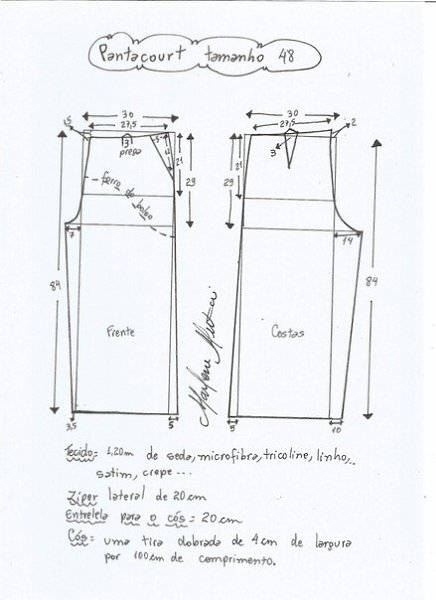 Pantacourt tamanho 48
30
27,5
1,5
3
prega
5
21
29
forro do bolso
7
84
Frente
3,5
5
30
27,5
2
3
21
29
14
84
Costas
5
10
Marlene Mukai
Tecido= 1,20m de seda, microfibra, tricoline, linho,..
satim, crepe...
Ziper lateral de 20cm
Entretela para o cós = 20cm
Cós= uma tira dobrada de 4cm de largura
por 100cm de comprimento.